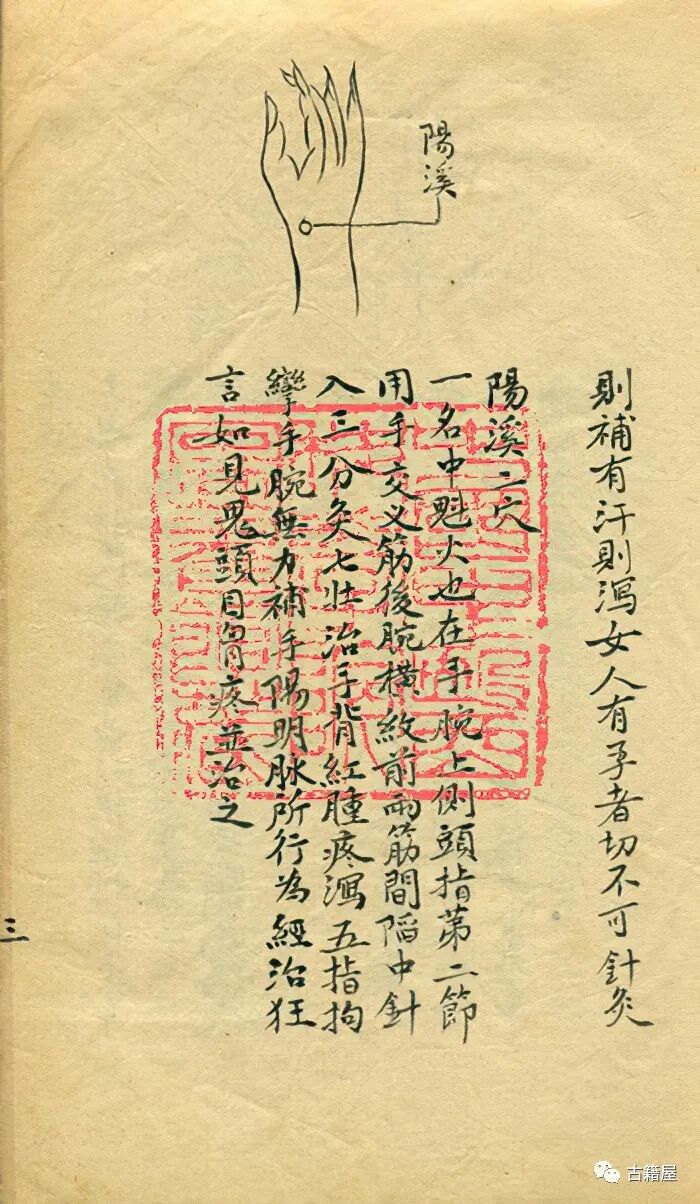 陽溪
則補有汗則瀉女人有孕者切不可針灸
陽溪二穴
一名中魁火也在手腕上側頭指第二節
用手交叉筋後腕橫紋前兩筋間陷中針
入三分灸七壯治手背紅腫疼瀉五指拘
攣手腕無力補手陽明脉所行為經治狂
言如見鬼頭目胃疼並治之
三
古籍屋